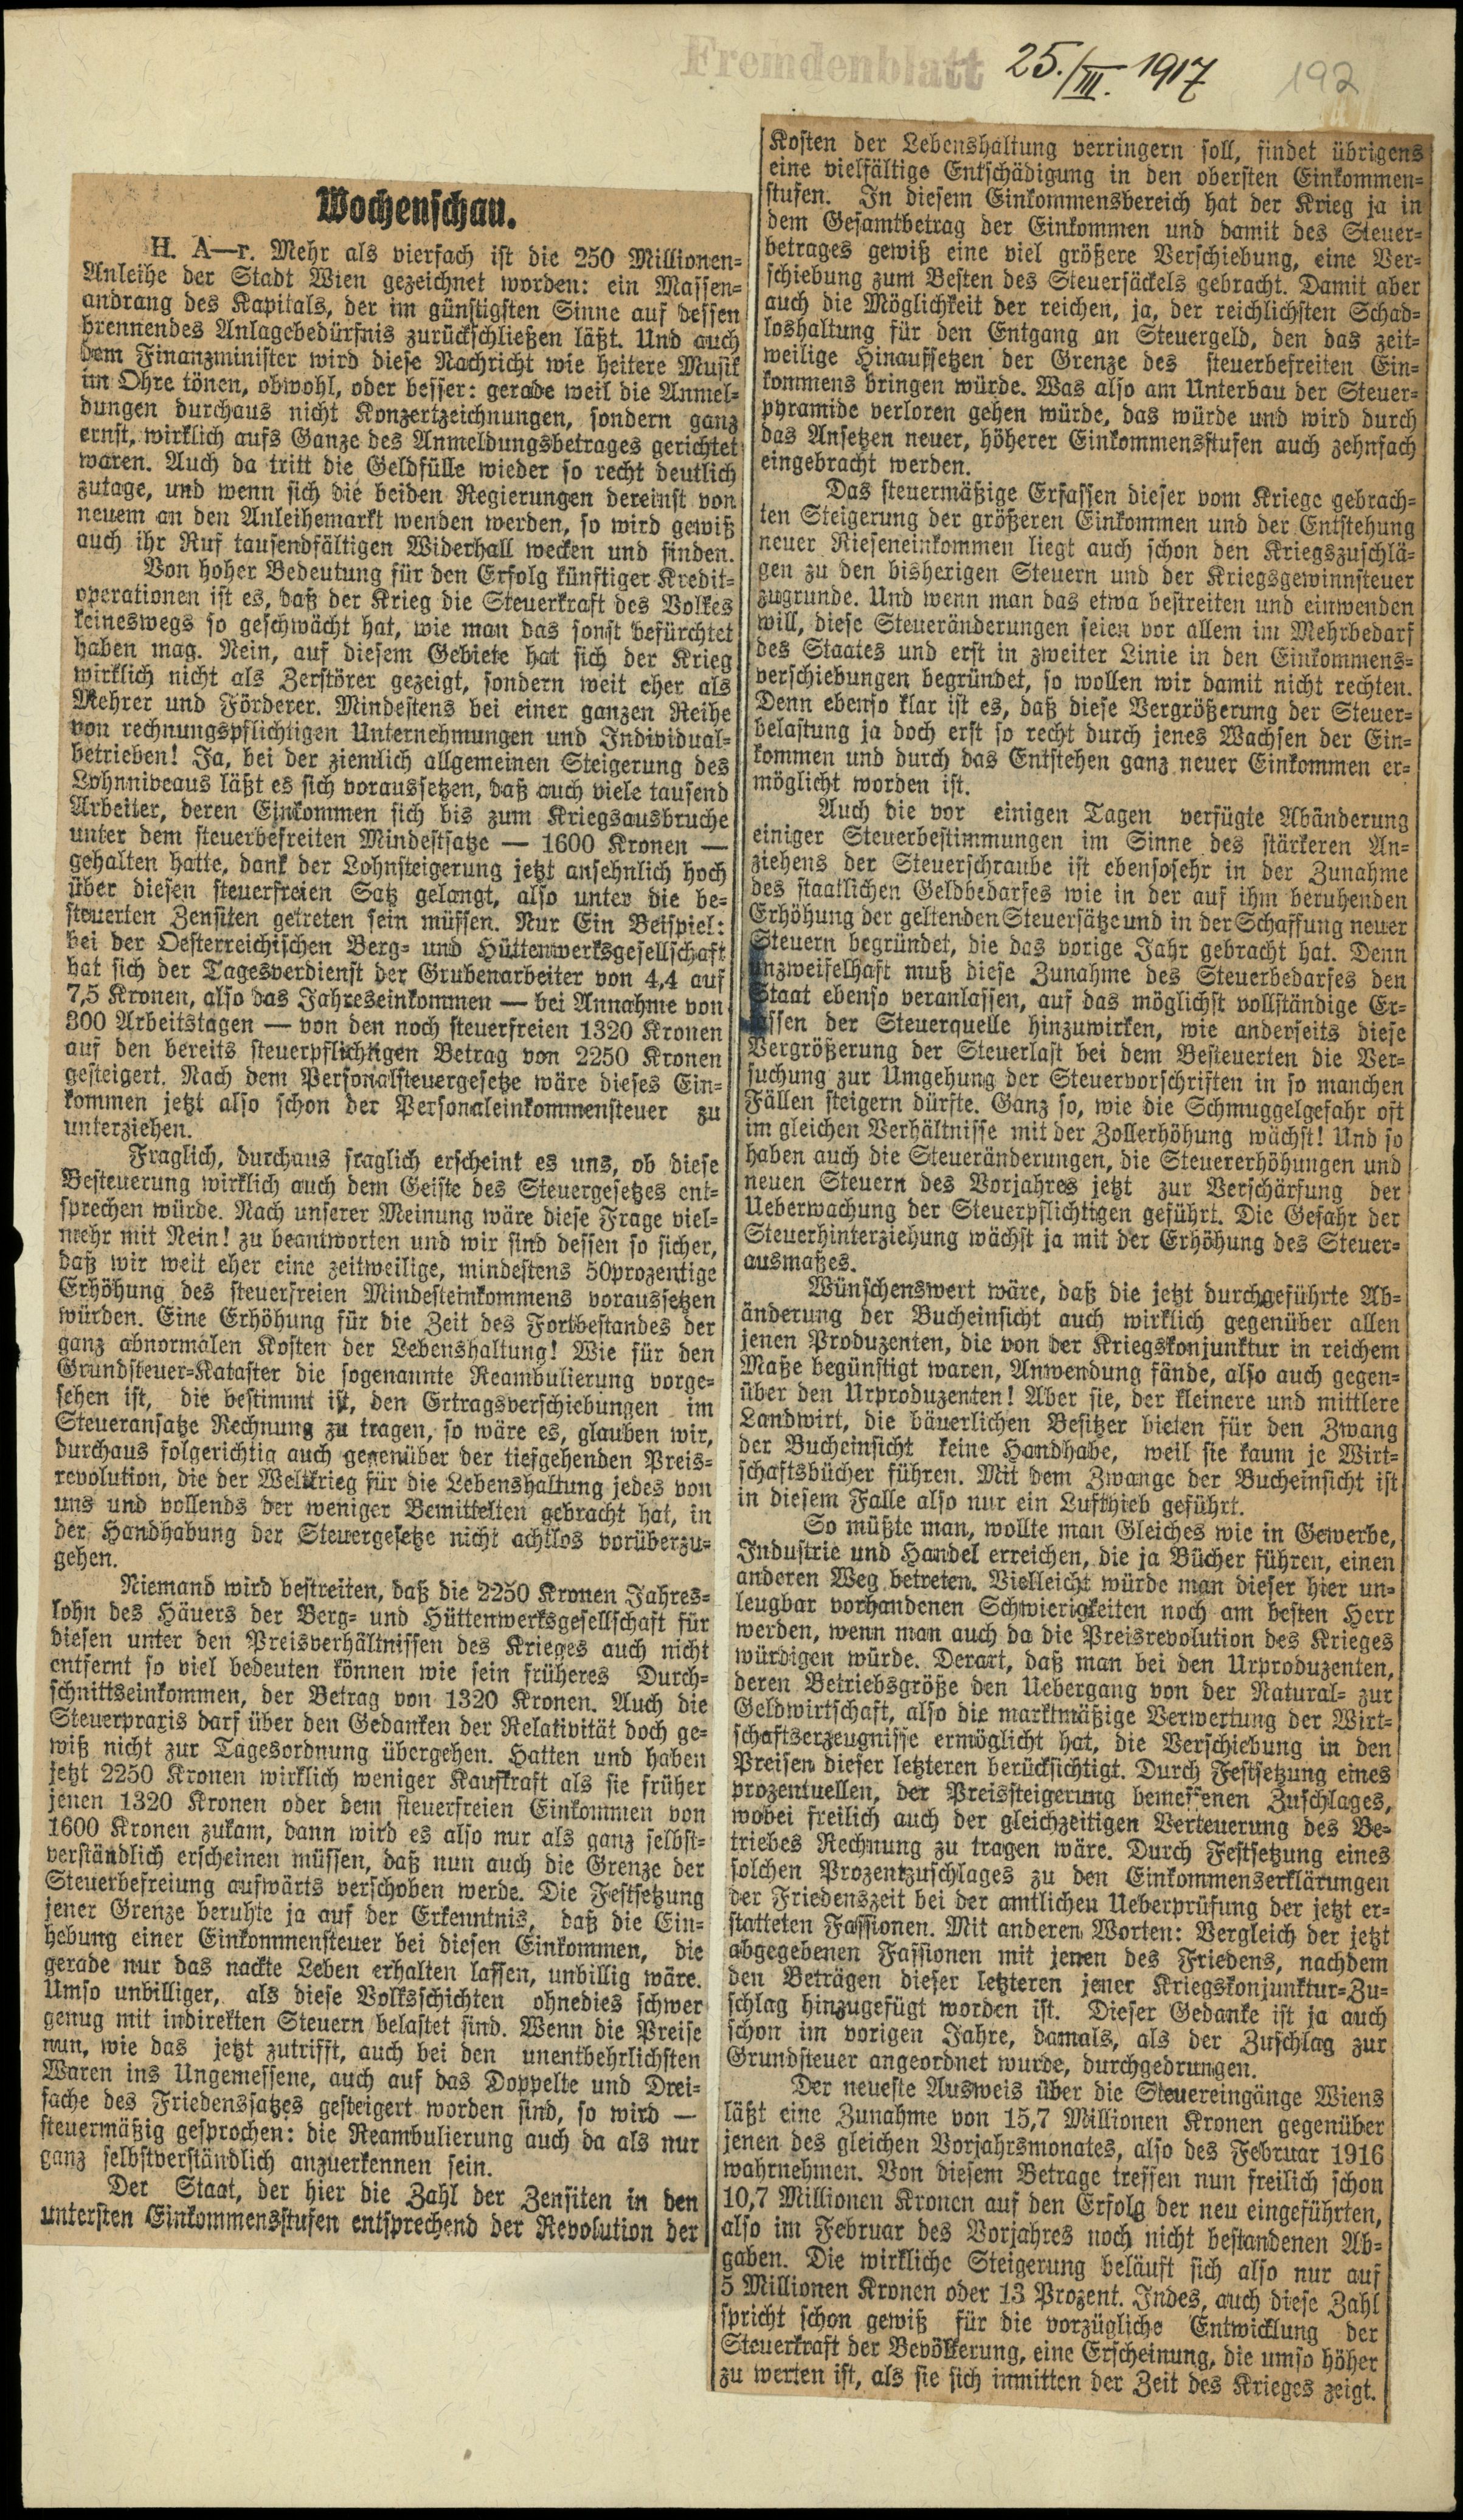 Fremdenblatt 25./III. 1917 192
Wochenschau.
H. A—r. Mehr als vierfach ist die 250 Millionen-
Anleihe der Stadt Wien gezeichnet worden: ein Massen-
andrang des Kapitals, der im günstigsten Sinne auf dessen
brennendes Anlagebedürfnis zurückschließen läßt. Und auch
dem Finanzminister wird diese Nachricht wie heitere Musik
im Ohre tönen, obwohl, oder besser: gerade weil die Anmel-
dungen durchaus nicht Konzertzeichnungen, sondern ganz
ernst, wirklich aufs Ganze des Anmeldungsbetrages gerichtet
waren. Auch da tritt die Geldfülle wieder so recht deutlich
zutage, und wenn sich die beiden Regierungen dereinst von
neuem an den Anleihemarkt wenden werden, so wird gewiß
auch ihr Ruf tausendfältigen Widerhall wecken und finden.
Von hoher Bedeutung für den Erfolg künftiger Kredit-
operationen ist es, daß der Krieg die Steuerkraft des Volkes
keineswegs so geschwächt hat, wie man das sonst befürchtet
haben mag. Nein, auf diesem Gebiete hat sich der Krieg
wirklich nicht als Zerstörer gezeigt, sondern weit eher als
Mehrer und Förderer. Mindestens bei einer ganzen Reihe
von rechnungspflichtigen Unternehmungen und Individual-
betrieben! Ja, bei der ziemlich allgemeinen Steigerung des
Lohnniveaus läßt es sich voraussetzen, daß auch viele tausend
Arbeiter, deren Einkommen sich bis zum Kriegsausbruche
unter dem steuerbefreiten Mindestsatze — 1600 Kronen —
gehalten hatte, dank der Lohnsteigerung jetzt ansehnlich hoch
über diesen steuerfreien Satz gelangt, also unter die be-
steuerten Zensiten getreten sein müssen. Nur Ein Beispiel:
bei der Oesterreichischen Berg- und Hüttenwerksgesellschaft
hat sich der Tagesverdienst der Grubenarbeiter von 4,4 auf
7,5 Kronen, also das Jahreseinkommen — bei Annahme von
300 Arbeitstagen — von den noch steuerfreien 1320 Kronen
auf den bereits steuerpflichtigen Betrag von 2250 Kronen
gesteigert. Nach dem Personalsteuergesetze wäre dieses Ein-
kommen jetzt also schon der Personaleinkommensteuer zu
unterziehen.
Fraglich, durchaus fraglich erscheint es uns, ob diese
Besteuerung wirklich auch dem Geiste des Steuergesetzes ent-
sprechen würde. Nach unserer Meinung wäre diese Frage viel-
mehr mit Nein! zu beantworten und wir sind dessen so sicher,
daß wir weit eher eine zeitweilige, mindestens 50prozentige
Erhöhung des steuerfreien Mindesteinkommens voraussetzen
würden. Eine Erhöhung für die Zeit des Fortbestandes der
ganz abnormalen Kosten der Lebenshaltung! Wie für den
Grundsteuer-Kataster die sogenannte Reambulierung vorge-
sehen ist, die bestimmt ist, den Ertragsverschiebungen im
Steueransatze Rechnung zu tragen, so wäre es, glauben wir,
durchaus folgerichtig auch gegenüber der tiefgehenden Preis-
revolution, die der Weltkrieg für die Lebenshaltung jedes von
uns und vollends der weniger Bemittelten gebracht hat, in
der Handhabung der Steuergesetze nicht achtlos vorüberzu-
gehen.
Niemand wird bestreiten, daß die 2250 Kronen Jahres-
lohn des Häuers der Berg- und Hüttenwerksgesellschaft für
diesen unter den Preisverhältnissen des Krieges auch nicht
entfernt so viel bedeuten können wie sein früheres Durch-
schnittseinkommen, der Betrag von 1320 Kronen. Auch die
Steuerpraxis darf über den Gedanken der Relativität doch ge-
wiß nicht zur Tagesordnung übergehen. Hatten und haben
jetzt 2250 Kronen wirklich weniger Kaufkraft als sie früher
jenen 1320 Kronen oder dem steuerfreien Einkommen von
1600 Kronen zukam, dann wird es also nur als ganz selbst-
verständlich erscheinen müssen, daß nun auch die Grenze der
Steuerbefreiung aufwärts verschoben werde. Die Festsetzung
jener Grenze beruhte ja auf der Erkenntnis, daß die Ein-
hebung einer Einkommensteuer bei diesen Einkommen, die
gerade nur das nackte Leben erhalten lassen, unbillig wäre.
Umso unbilliger, als diese Volksschichten ohnedies schwer
genug mit indirekten Steuern belastet sind. Wenn die Preise
nun, wie das jetzt zutrifft, auch bei den unentbehrlichsten
Waren ins Ungemessene, auch auf das Doppelte und Drei-
fache des Friedenssatzes gesteigert worden sind, so wird —
steuermäßig gesprochen: die Reambulierung auch da als nur
ganz selbstverständlich anzuerkennen sein.
Der Staat, der hier die Zahl der Zensiten in den
untersten Einkommensstufen entsprechend der Revolution der
Kosten der Lebenshaltung verringern soll, findet übrigens
eine vielfältige Entschädigung in den obersten Einkommen-
stufen. In diesem Einkommensbereich hat der Krieg ja in
dem Gesamtbetrag der Einkommen und damit des Steuer-
betrages gewiß eine viel größere Verschiebung, eine Ver-
schiebung zum Besten des Steuersäckels gebracht. Damit aber
auch die Möglichkeit der reichen, ja, der reichlichsten Schad-
loshaltung für den Entgang an Steuergeld, den das zeit-
weilige Hinaufsetzen der Grenze des steuerbefreiten Ein-
kommens bringen würde. Was also am Unterbau der Steuer-
pyramide verloren gehen würde, das würde und wird durch
das Ansetzen neuer, höherer Einkommensstufen auch zehnfach
eingebracht werden.
Das steuermäßige Erfassen dieser vom Kriege gebrach-
ten Steigerung der größeren Einkommen und der Entstehung
neuer Rieseneinkommen liegt auch schon den Kriegszuschlä-
gen zu den bisherigen Steuern und der Kriegsgewinnsteuer
zugrunde. Und wenn man das etwa bestreiten und einwenden
will, diese Steueränderungen seien vor allem im Mehrbedarf
des Staates und erst in zweiter Linie in den Einkommens-
verschiebungen begründet, so wollen wir damit nicht rechten.
Denn ebenso klar ist es, daß diese Vergrößerung der Steuer-
belastung ja doch erst so recht durch jenes Wachsen der Ein-
kommen und durch das Entstehen ganz neuer Einkommen er-
möglicht worden ist.
Auch die vor einigen Tagen verfügte Abänderung
einiger Steuerbestimmungen im Sinne des stärkeren An-
ziehens der Steuerschraube ist ebensosehr in der Zunahme
des staatlichen Geldbedarfes wie in der auf ihm beruhenden
Erhöhung der geltenden Steuersätze und in der Schaffung neuer
Steuern begründet, die das vorige Jahr gebracht hat. Denn
unzweifelhaft muß diese Zunahme des Steuerbedarfes den
Staat ebenso veranlassen, auf das möglichst vollständige Er-
fassen der Steuerquelle hinzuwirken, wie anderseits diese
Vergrößerung der Steuerlast bei dem Besteuerten die Ver-
suchung zur Umgehung der Steuervorschriften in so manchen
Fällen steigern dürfte. Ganz so, wie die Schmuggelgefahr oft
im gleichen Verhältnisse mit der Zollerhöhung wächst! Und so
haben auch die Steueränderungen, die Steuererhöhungen und
neuen Steuern des Vorjahres jetzt zur Verschärfung der
Ueberwachung der Steuerpflichtigen geführt. Die Gefahr der
Steuerhinterziehung wächst ja mit der Erhöhung des Steuer-
ausmaßes.
Wünschenswert wäre, daß die jetzt durchgeführte Ab-
änderung der Bucheinsicht auch wirklich gegenüber allen
jenen Produzenten, die von der Kriegskonjunktur in reichem
Maße begünstigt waren, Anwendung fände, also auch gegen-
über den Urproduzenten! Aber sie, der kleinere und mittlere
Landwirt, die bäuerlichen Besitzer bieten für den Zwang
der Bucheinsicht keine Handhabe, weil sie kaum je Wirt-
schaftsbücher führen. Mit dem Zwange der Bucheinsicht ist
in diesem Falle also nur ein Lufthieb geführt.
So müßte man, wollte man Gleiches wie in Gewerbe,
Industrie und Handel erreichen, die ja Bücher führen, einen
anderen Weg betreten. Vielleicht würde man dieser hier un-
leugbar vorhandenen Schwierigkeiten noch am besten Herr
werden, wenn man auch da die Preisrevolution des Krieges
würdigen würde. Derart, daß man bei den Urproduzenten,
deren Betriebsgröße den Uebergang von der Natural- zur
Geldwirtschaft, also die marktmäßige Verwertung der Wirt-
schaftserzeugnisse ermöglicht hat, die Verschiebung in den
Preisen dieser letzteren berücksichtigt. Durch Festsetzung eines
prozentuellen, der Preissteigerung bemessenen Zuschlages,
wobei freilich auch der gleichzeitigen Verteuerung des Be-
triebes Rechnung zu tragen wäre. Durch Festsetzung eines
solchen Prozentzuschlages zu den Einkommenserklärungen
der Friedenszeit bei der amtlichen Ueberprüfung der jetzt er-
statteten Fassionen. Mit anderen Worten: Vergleich der jetzt
abgegebenen Fassionen mit jenen des Friedens, nachdem
den Beträgen dieser letzteren jener Kriegskonjunktur-Zu-
schlag hinzugefügt worden ist. Dieser Gedanke ist ja auch
schon im vorigen Jahre, damals, als der Zuschlag zur
Grundsteuer angeordnet wurde, durchgedrungen.
Der neueste Ausweis über die Steuereingänge Wiens
läßt eine Zunahme von 15,7 Millionen Kronen gegenüber
jenen des gleichen Vorjahrsmonates, also des Februar 1916
wahrnehmen. Von diesem Betrage treffen nun freilich schon
10,7 Millionen Kronen auf den Erfolg der neu eingeführten,
also im Februar des Vorjahres noch nicht bestandenen Ab-
gaben. Die wirkliche Steigerung beläuft sich also nur auf
5 Millionen Kronen oder 13 Prozent. Indes, auch diese Zahl
spricht schon gewiß für die vorzügliche Entwicklung der
Steuerkraft der Bevölkerung, eine Erscheinung, die umso höher
zu werten ist, als sie sich inmitten der Zeit des Krieges zeigt.